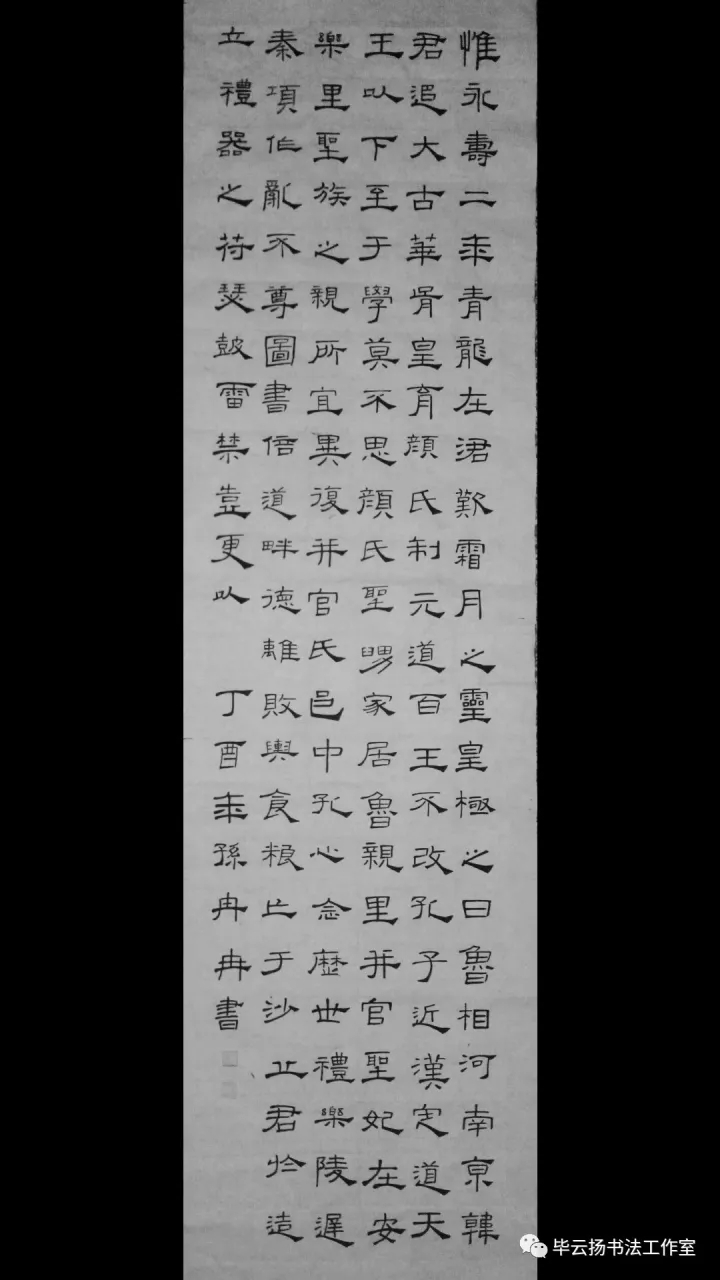 惟永壽二年青龍在涒歎霜月之靈皇極之日魯相河南京韓
君追大古華胥皇育顏氏制元道百王不改孔子近漢定道天
王以下至于學莫不思顏氏聖舅家居魯親里并官聖妃在安
樂里聖族之親所宜異復并官氏邑中孔心念歷世禮樂陵遲
秦項作亂不尊圖書倍道畔德離敗輿食粮亡于沙丘君於造
立禮器之苻瑟鼓雷禁壺更以 丁酉年孫冉冉書
毕云扬书法工作室